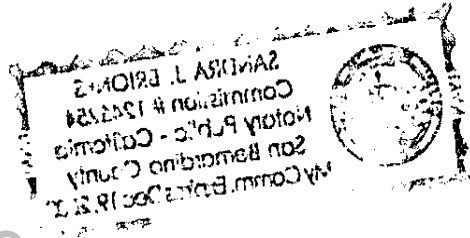 SANDRA J. BRIONES
Commission #
Notary Public - California
San Bernardino County
My Comm. Expires Dec 19,